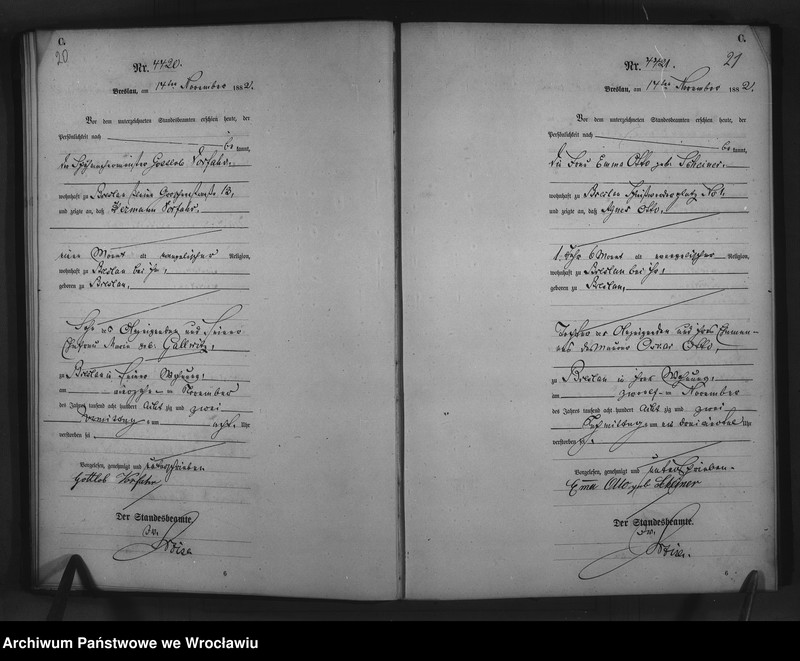 C.
20
Nr. 4420.
Breslau, am 14ten November 1882.
Vor dem unterzeichneten Standesbeamten erschien heute, der
Persönlichkeit nach
be kannt,
der Schuhmachermeister Gottlob Vorfahr,
wohnhaft zu Breslau kleine Groschenstraße 13,
und zeigte an, daß Hermann Vorfahr,
ein Monat alt evangelischer Religion,
wohnhaft zu Breslau bei ihm,
geboren zu Breslau,
Sohn des Anzeigenden und seiner
Ehefrau Maria geb. Gallwitz,
zu Breslau in seiner Wohnung,
am November
des Jahres tausend acht hundert acht zig und zwei
Vormittag um acht Uhr
verstorben sei
Vorgelesen, genehmigt und unterschrieben
Gottlob Vorfahr
Der Standesbeamte.
In V.
6
C.
21
Nr. 4421.
Breslau, am 14ten November 1882.
Vor dem unterzeichneten Standesbeamten erschien heute, der
Persönlichkeit nach
be kannt,
die Frau Emma Otto geb. Scheiner,
wohnhaft zu Breslau Schießwerderplatz No 1,
und zeigte an, daß Agnes Otto,
1 Jahr 6 Monat alt evangelischer Religion,
wohnhaft zu Breslau bei ihr,
geboren zu Breslau,
Tochter der Anzeigenden und ihres Eheman-
nes des Maurer Oscar Otto,
zu Breslau in ihrer Wohnung,
am zwölften November
des Jahres tausend acht hundert acht zig und zwei
Nachmittag um drei viertel Uhr
verstorben sei.
Vorgelesen, genehmigt und unterschrieben.
Emma Otto geb. Scheiner
Der Standesbeamte.
In V.
6
Archiwum Państwowe we Wrocławiu